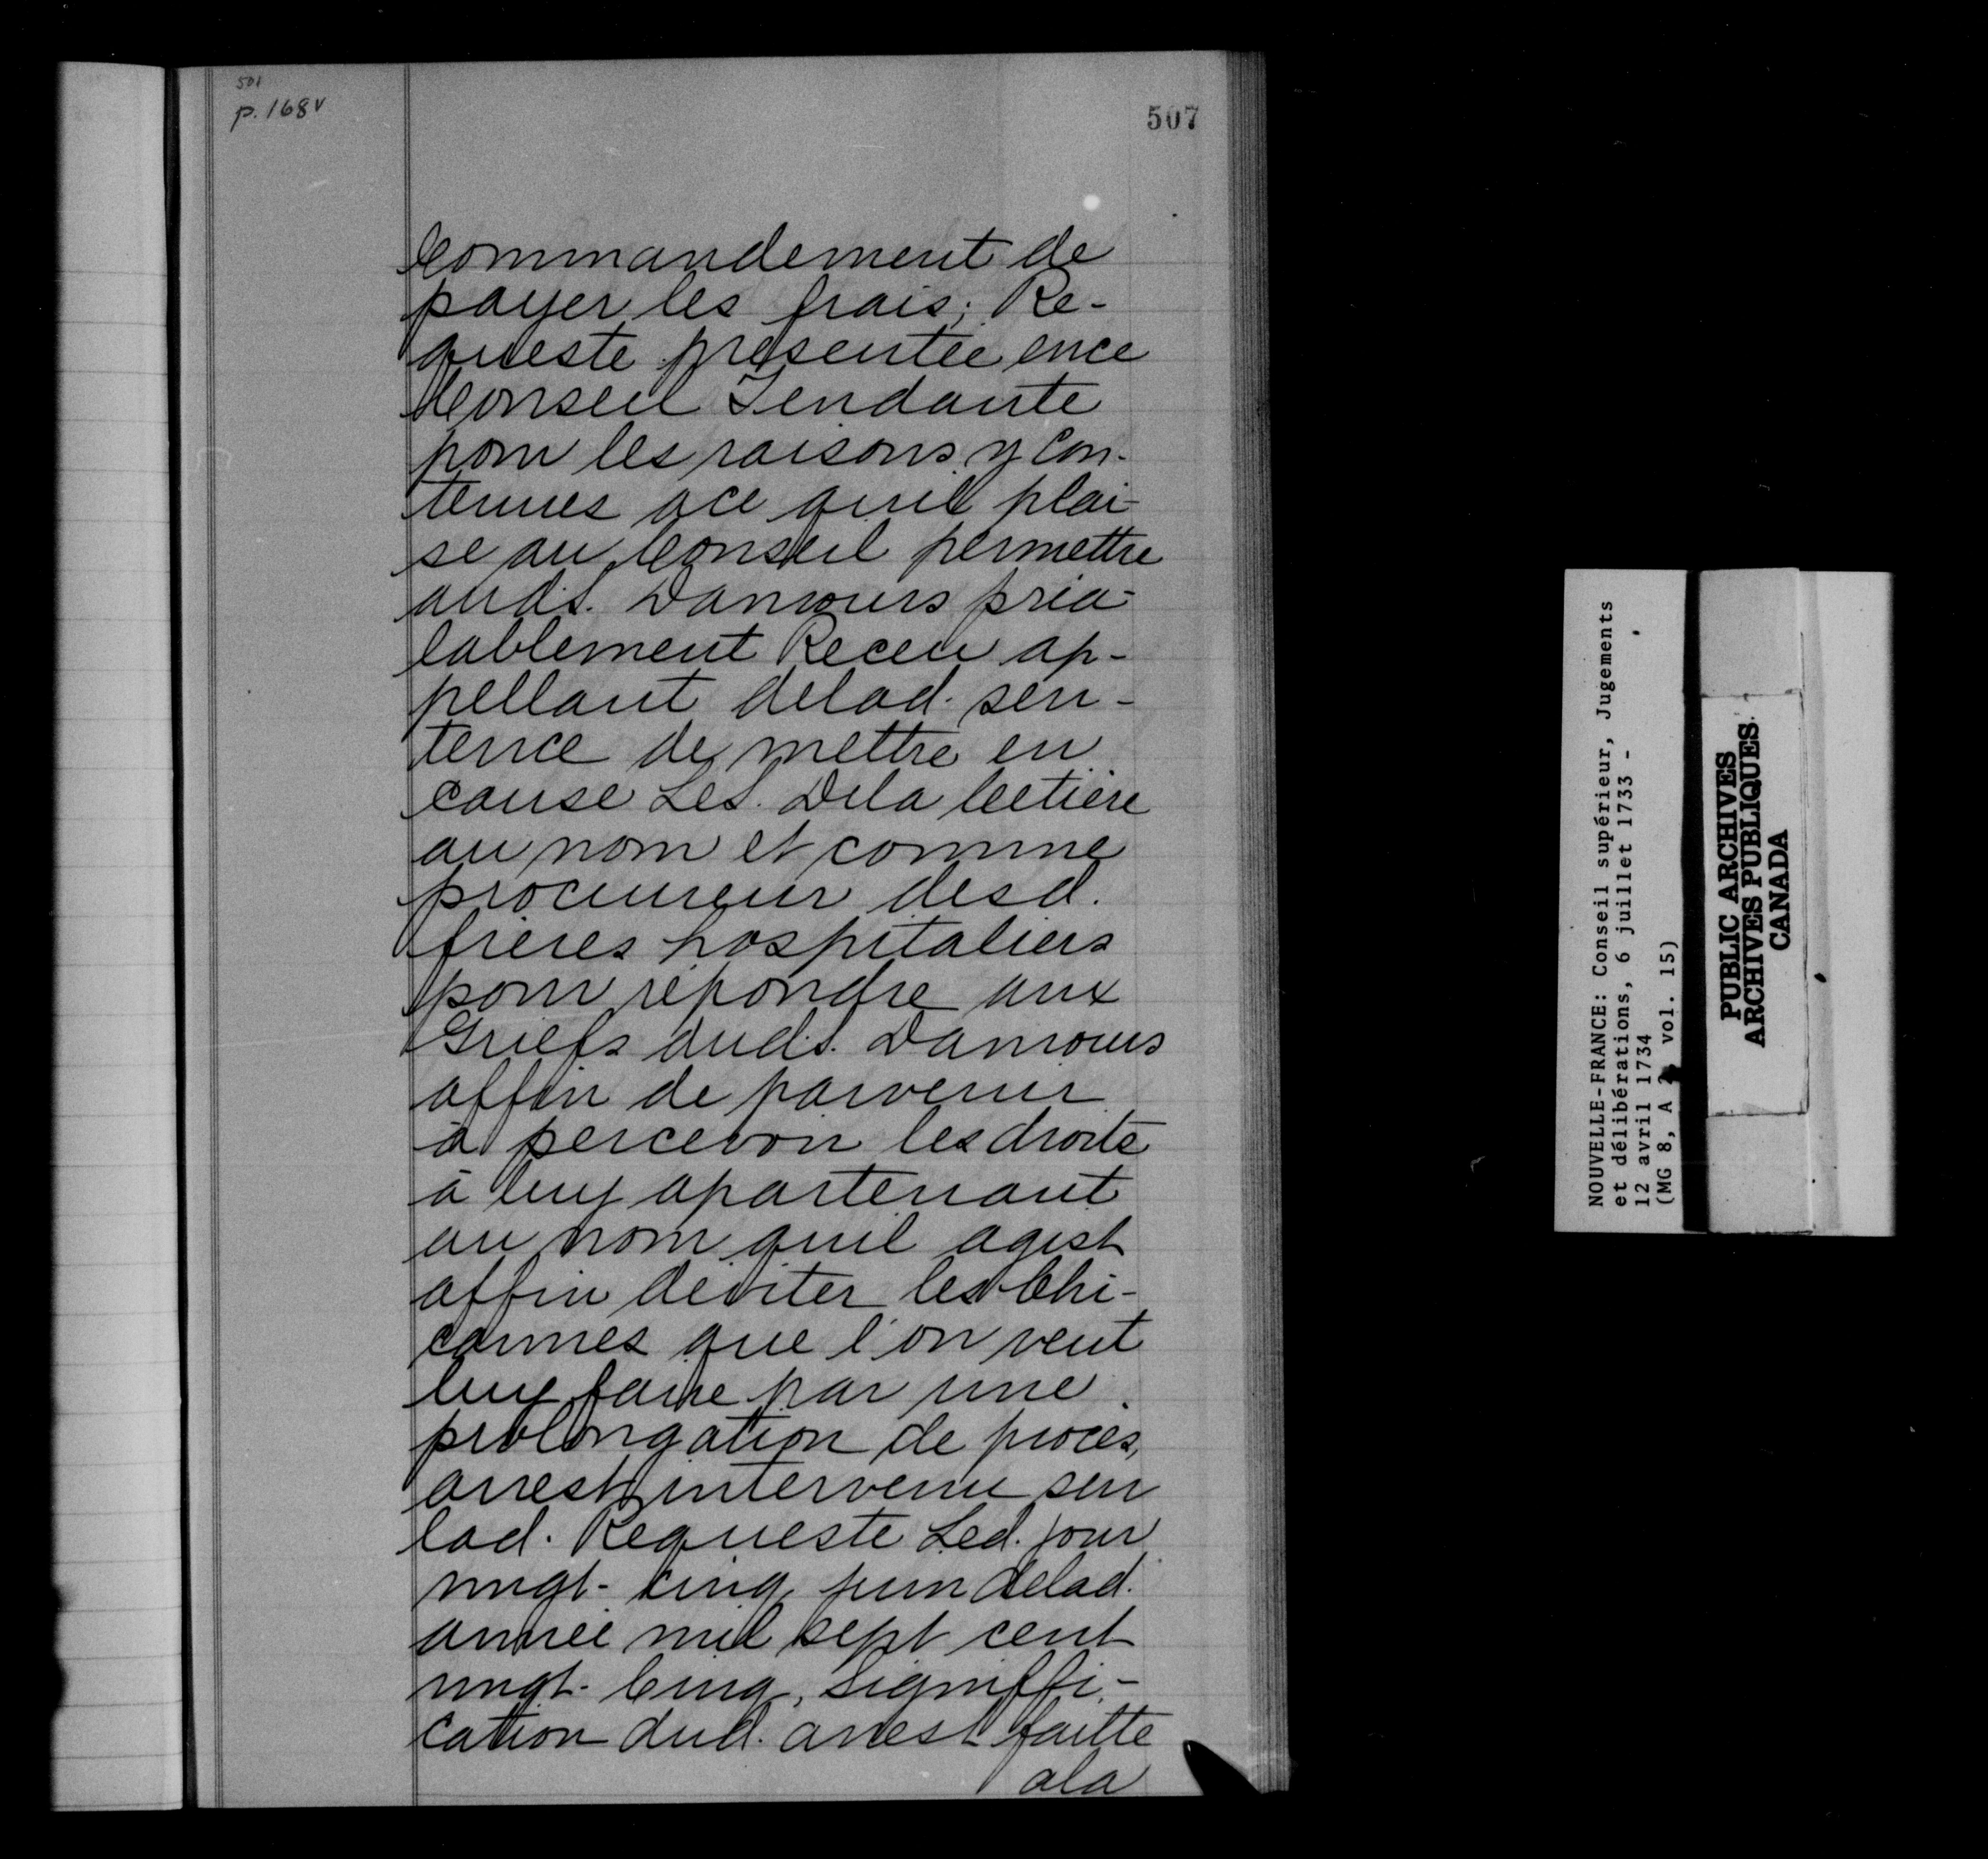 501
p. 168v
507
Commandement de
payer les frais; Re-
queste presentée ence
Conseil Tendante
pour les raisons y con-
tenues ace quil plai-
se au Conseil permettre
aud S. Damours préa-
lablement Receu ap-
pellant delad. sen-
tence de mettre en
cause Le S. Dela Cetière
au nom et comme
procureur desd.
frères hospitaliers
pour répondre aux
Griefs dud. S. Damours
affin de parvenir
à percevoir les droits
à luy apartenant
au nom quil agist
affin déviter les Chi-
cannes que l'on veut
luy faire par une
prolongation de procès,
arrest intervenu seu
lad. Requeste Led. jour
vingt-cinq juin delad.
année mil sept cent
vingt-Cinq, signiffi-
cation dud. arrest faitte
ala
NOUVELLE-FRANCE: Conseil supérieur, Jugements
et délibérations, 6 juillet 1733 -
12 avril 1734
(MG 8, A vol. 15)
PUBLIC ARCHIVES
ARCHIVES PUBLIQUES
CANADA